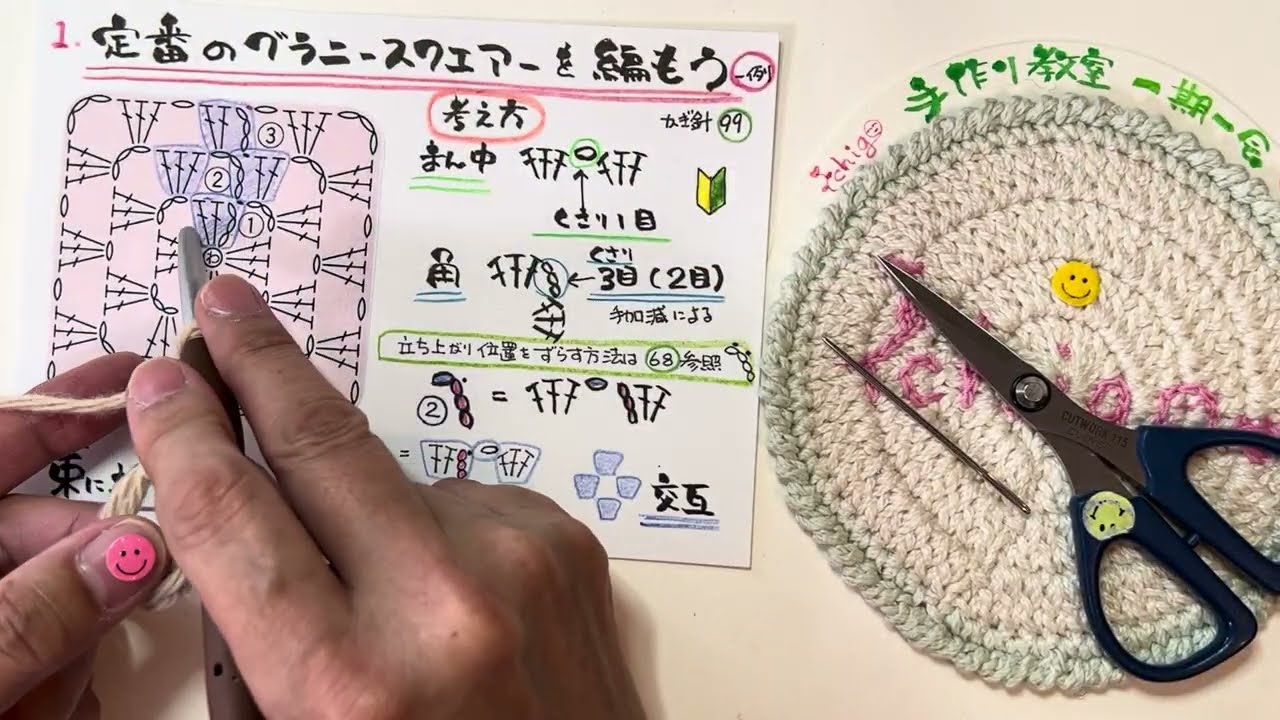 1. 定番のグラニースクエアーを編もう 一例
考え方
かぎ針 99
まん中
くさり1目
角
くさり
3目(2目)
手加減による
立ち上がり位置をずらす方法は 68 参照
② =
=
交互
③
②
①
わ
束に
手作り教室 一期一会
Ichigo
CUTWORK 115